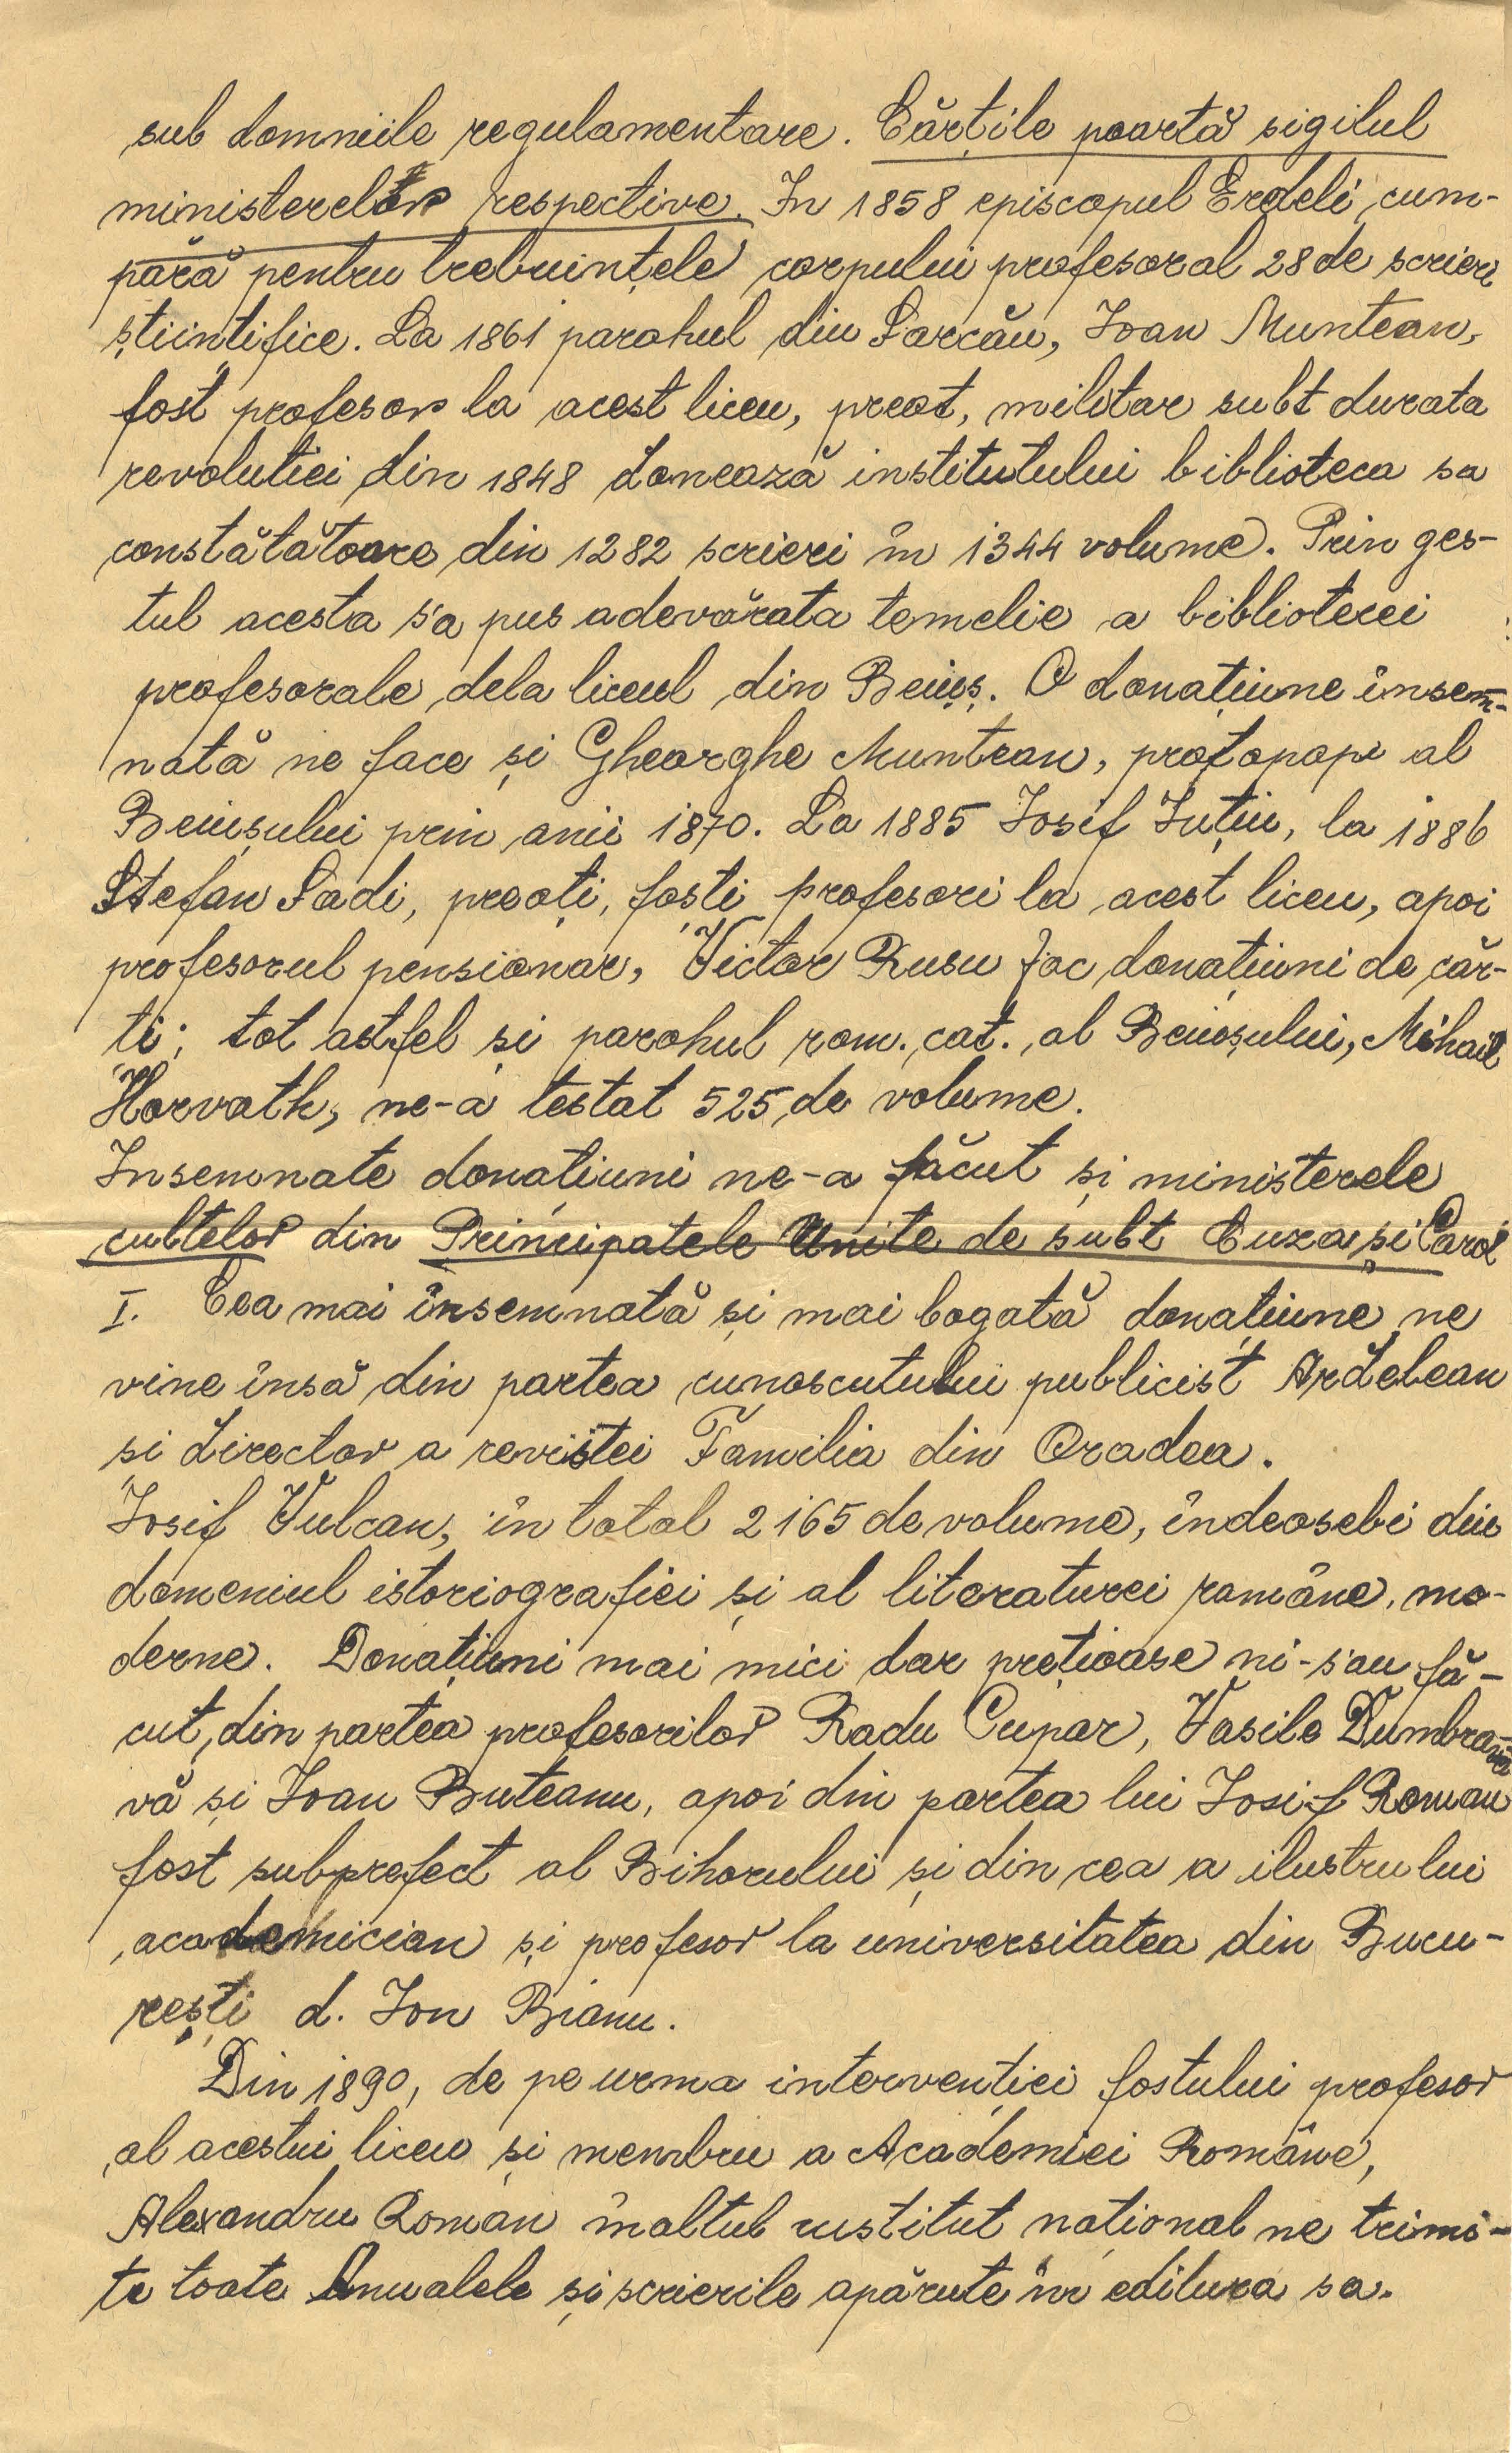 sub domniile regulamentare. Cărțile poartă sigilul
ministerelor respective. In 1858 episcopul Erdeli cum-
pără pentru trebuințele corpului profesoral 28 de scrieri
științifice. La 1861 parohul din Sarcău, Ioan Muntean,
fost profesor la acest liceu, preot, militar subt durata
revoluției din 1848 donează institutului biblioteca sa
constătătoare din 1282 scrieri în 1344 volume. Prin ges-
tul acesta s'a pus adevărata temelie a bibliotecei
profesorale dela liceul din Beiuș. O donațiune însem-
nată ne face și Gheorghe Muntean, protopop al
Beiușului prin anii 1870. La 1885 Iosif Iuțiu, la 1886
Ștefan Ladi, preoți, foști profesori la acest liceu, apoi
profesorul pensionar, Victor Rusu fac donațiuni de căr-
ti; tot astfel și parohul rom. cat. al Beiușului, Mihail
Horvath, ne-a testat 525 de volume.
Insemnate donațiuni ne-a făcut și ministerele
cultelor din Principatele Unite de subt Cuza și Carol
I. Cea mai însemnată și mai bogată donațiune ne
vine însă din partea cunoscutului publicist Ardelean
si director a revistei Familia din Oradea.
Iosif Vulcan, în total 2165 de volume, îndeosebi din
domeniul istoriografiei și al literaturei române, mo-
derne. Donațiuni mai mici dar prețioase ni-s'au fă-
cut, din partea profesorilor Radu Cupar, Vasile Dumbra
vă și Ioan Buteanu, apoi din partea lui Iosif Roman
fost subprefect al Bihorului și din cea a ilustrului
academician și profesor la universitatea din Bucu-
rești d. Ion Bianu.
Din 1890, de pe urma intervenției fostului profesor
al acestui liceu și membru a Academiei Române,
Alexandru Roman înaltul institut național ne trimi-
te toate Anualele și scrierile apărute în editura sa.